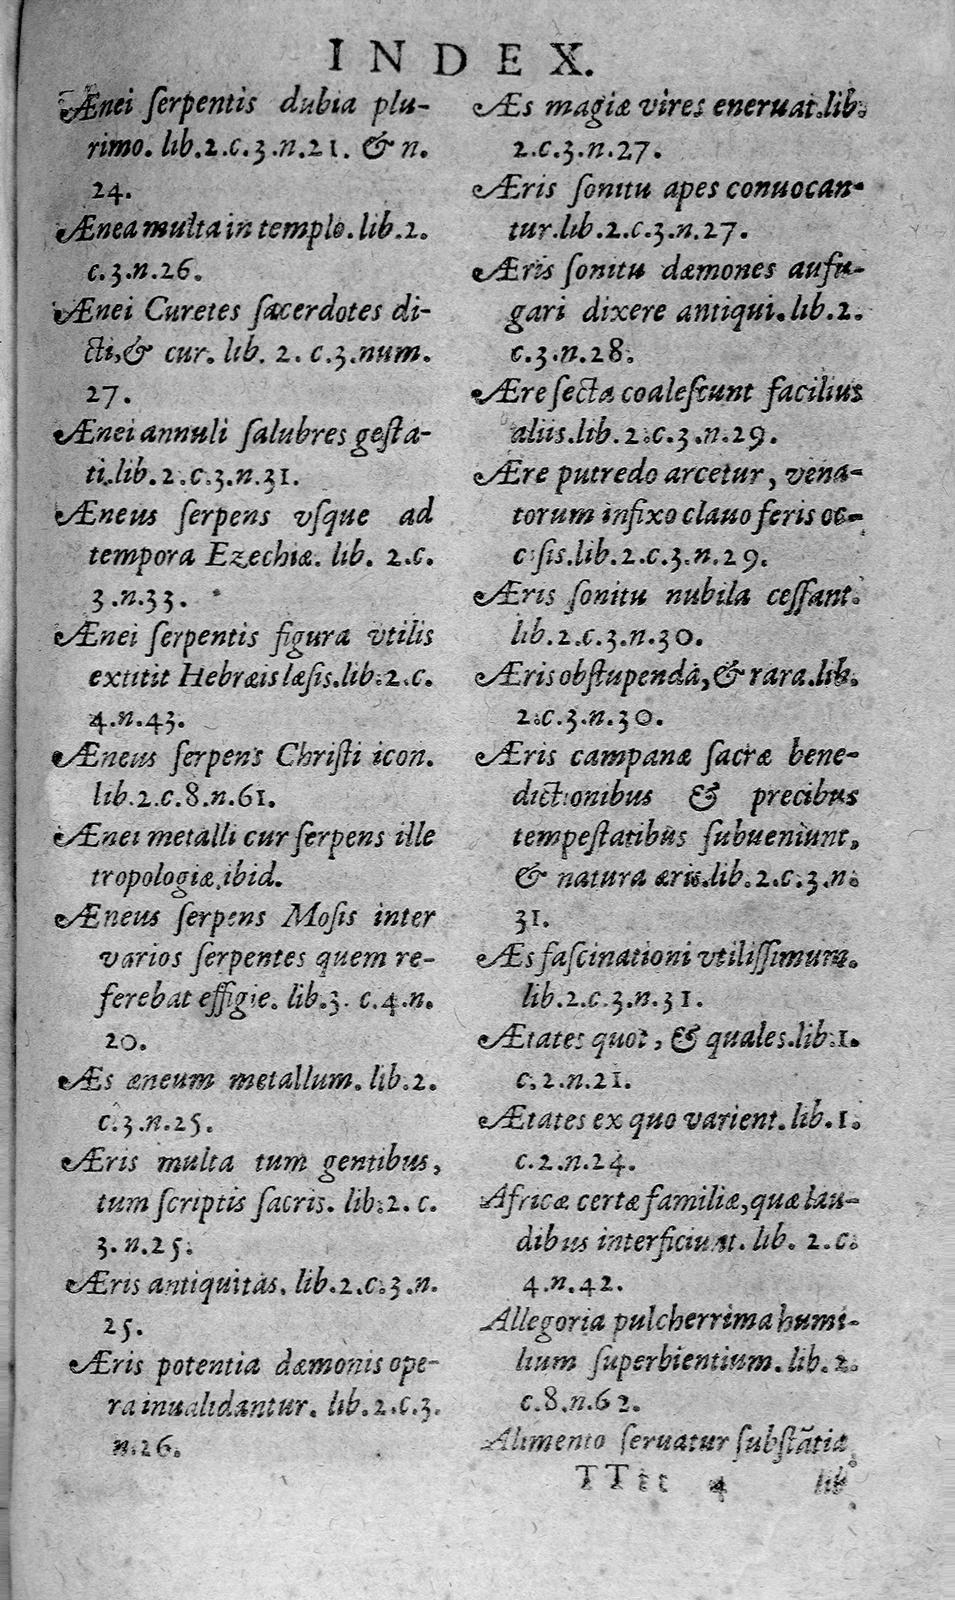 INDEX.
Ænei ſerpentis dubia plu-
rimo. lib.2.c.3.n.21. & n.
24.
Ænea multa in templo. lib.2.
c.3.n.26.
Ænei Curetes ſacerdotes di-
cti,& cur. lib. 2. c.3.num.
27.
Ænei annuli ſalubres geſta-
ti.lib.2.c.3.n.31.
Æneus ſerpens vſque ad
tempora Ezechiæ. lib. 2.c.
3.n.33.
Ænei ſerpentis figura vtilis
extitit Hebræis læſis.lib.2.c.
4.n.43.
Æneus ſerpens Chriſti icon.
lib.2.c.8.n.61.
Ænei metalli cur ſerpens ille
tropologiæ.ibid.
Æneus ſerpens Moſis inter
varios ſerpentes quem re-
ferebat effigie. lib.3. c.4.n.
20.
Æs æneum metallum. lib.2.
c.3.n.25.
Æris multa tum gentibus,
tum ſcriptis ſacris. lib.2. c.
3.n.25.
Æris antiquitas. lib.2.c.3.n.
25.
Æris potentia dæmonis ope-
ra inualidantur. lib.2.c.3.
n.26.
Æs magiæ vires eneruat.lib.
2.c.3.n.27.
Æris ſonitu apes conuocan-
tur.lib.2.c.3.n.27.
Æris ſonitu dæmones aufu-
gari dixere antiqui.lib.2.
c.3.n.28.
Ære ſecta coaleſcunt facilius
aliis.lib.2.c.3.n.29.
Ære putredo arcetur, vena-
torum infixo clauo feris oc-
ciſis.lib.2.c.3.n.29.
Æris ſonitu nubila ceſſant.
lib.2.c.3.n.30.
Æris obſtupenda,& rara.lib.
2.c.3.n.30.
Æris campanæ ſacræ bene-
dictionibus & precibus
tempeſtatibus ſubueniunt,
& natura æris.lib.2.c.3.n.
31.
Æs faſcinationi vtiliſſimum.
lib.2.c.3.n.31.
Ætates quot, & quales.lib.1.
c.2.n.21.
Ætates ex quo varient. lib.1.
c.2.n.24.
Africæ certæ familiæ,quæ lau-
dibus interficiunt. lib. 2.c.
4.n.42.
Allegoria pulcherrima humi-
lium ſuperbientium. lib.2.
c.8.n.62.
Alimento ſeruatur ſubſtãtia.
TTtt 4 lib